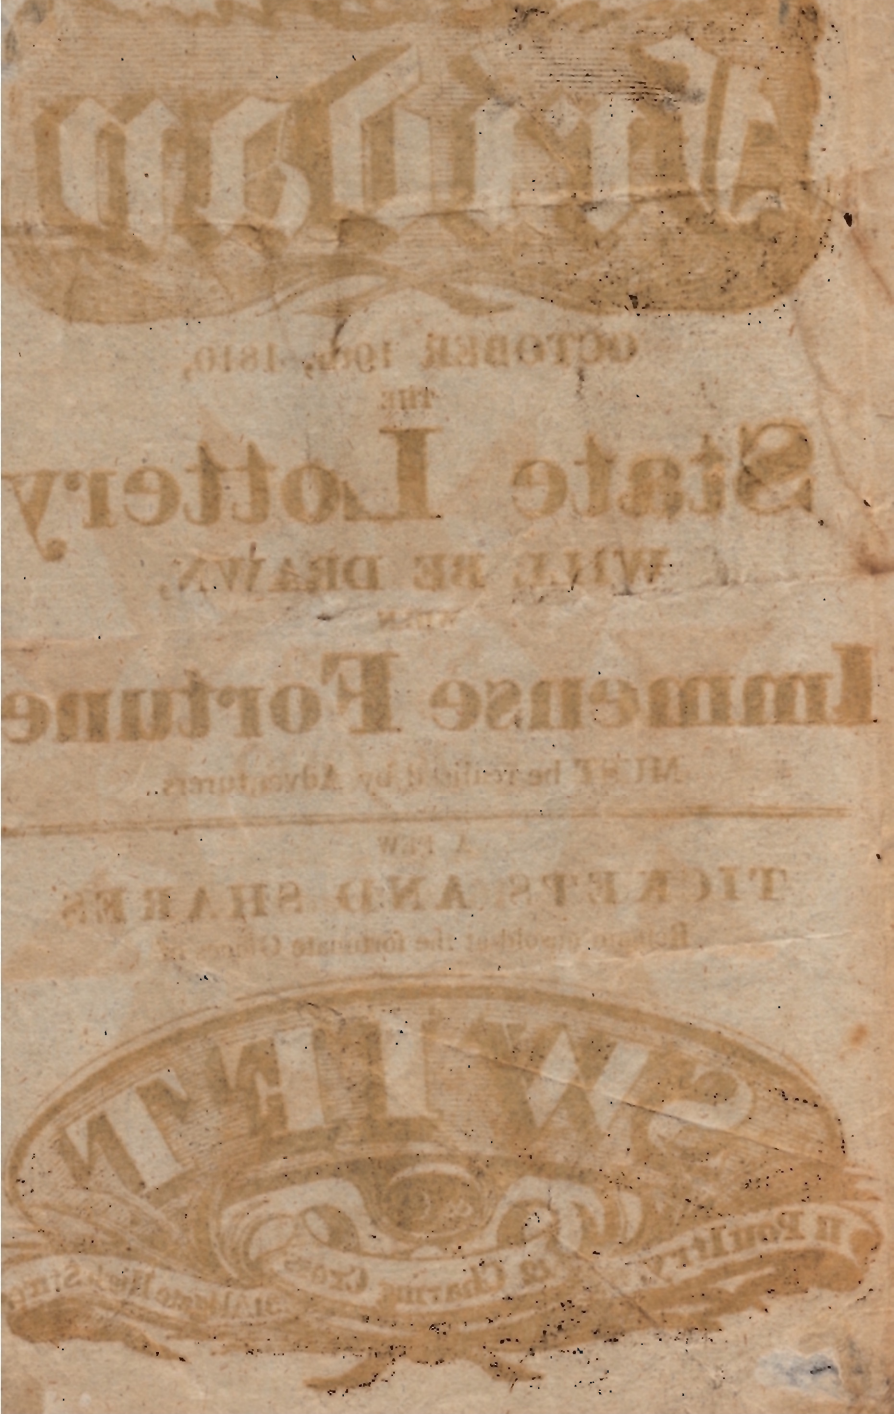 Friday
OCTOBER 19th, 1810,
THE
State Lottery
WILL BE DRAWN,
WHEN
Immense Fortune
MUST be realised by Adventurers.
A FEW
TICKETS AND SHARES
Remain unsold at the fortunate Offices of
SWIFT
& Co.
11 Poultry, Charing Cross & 31 Aldgate High Stree